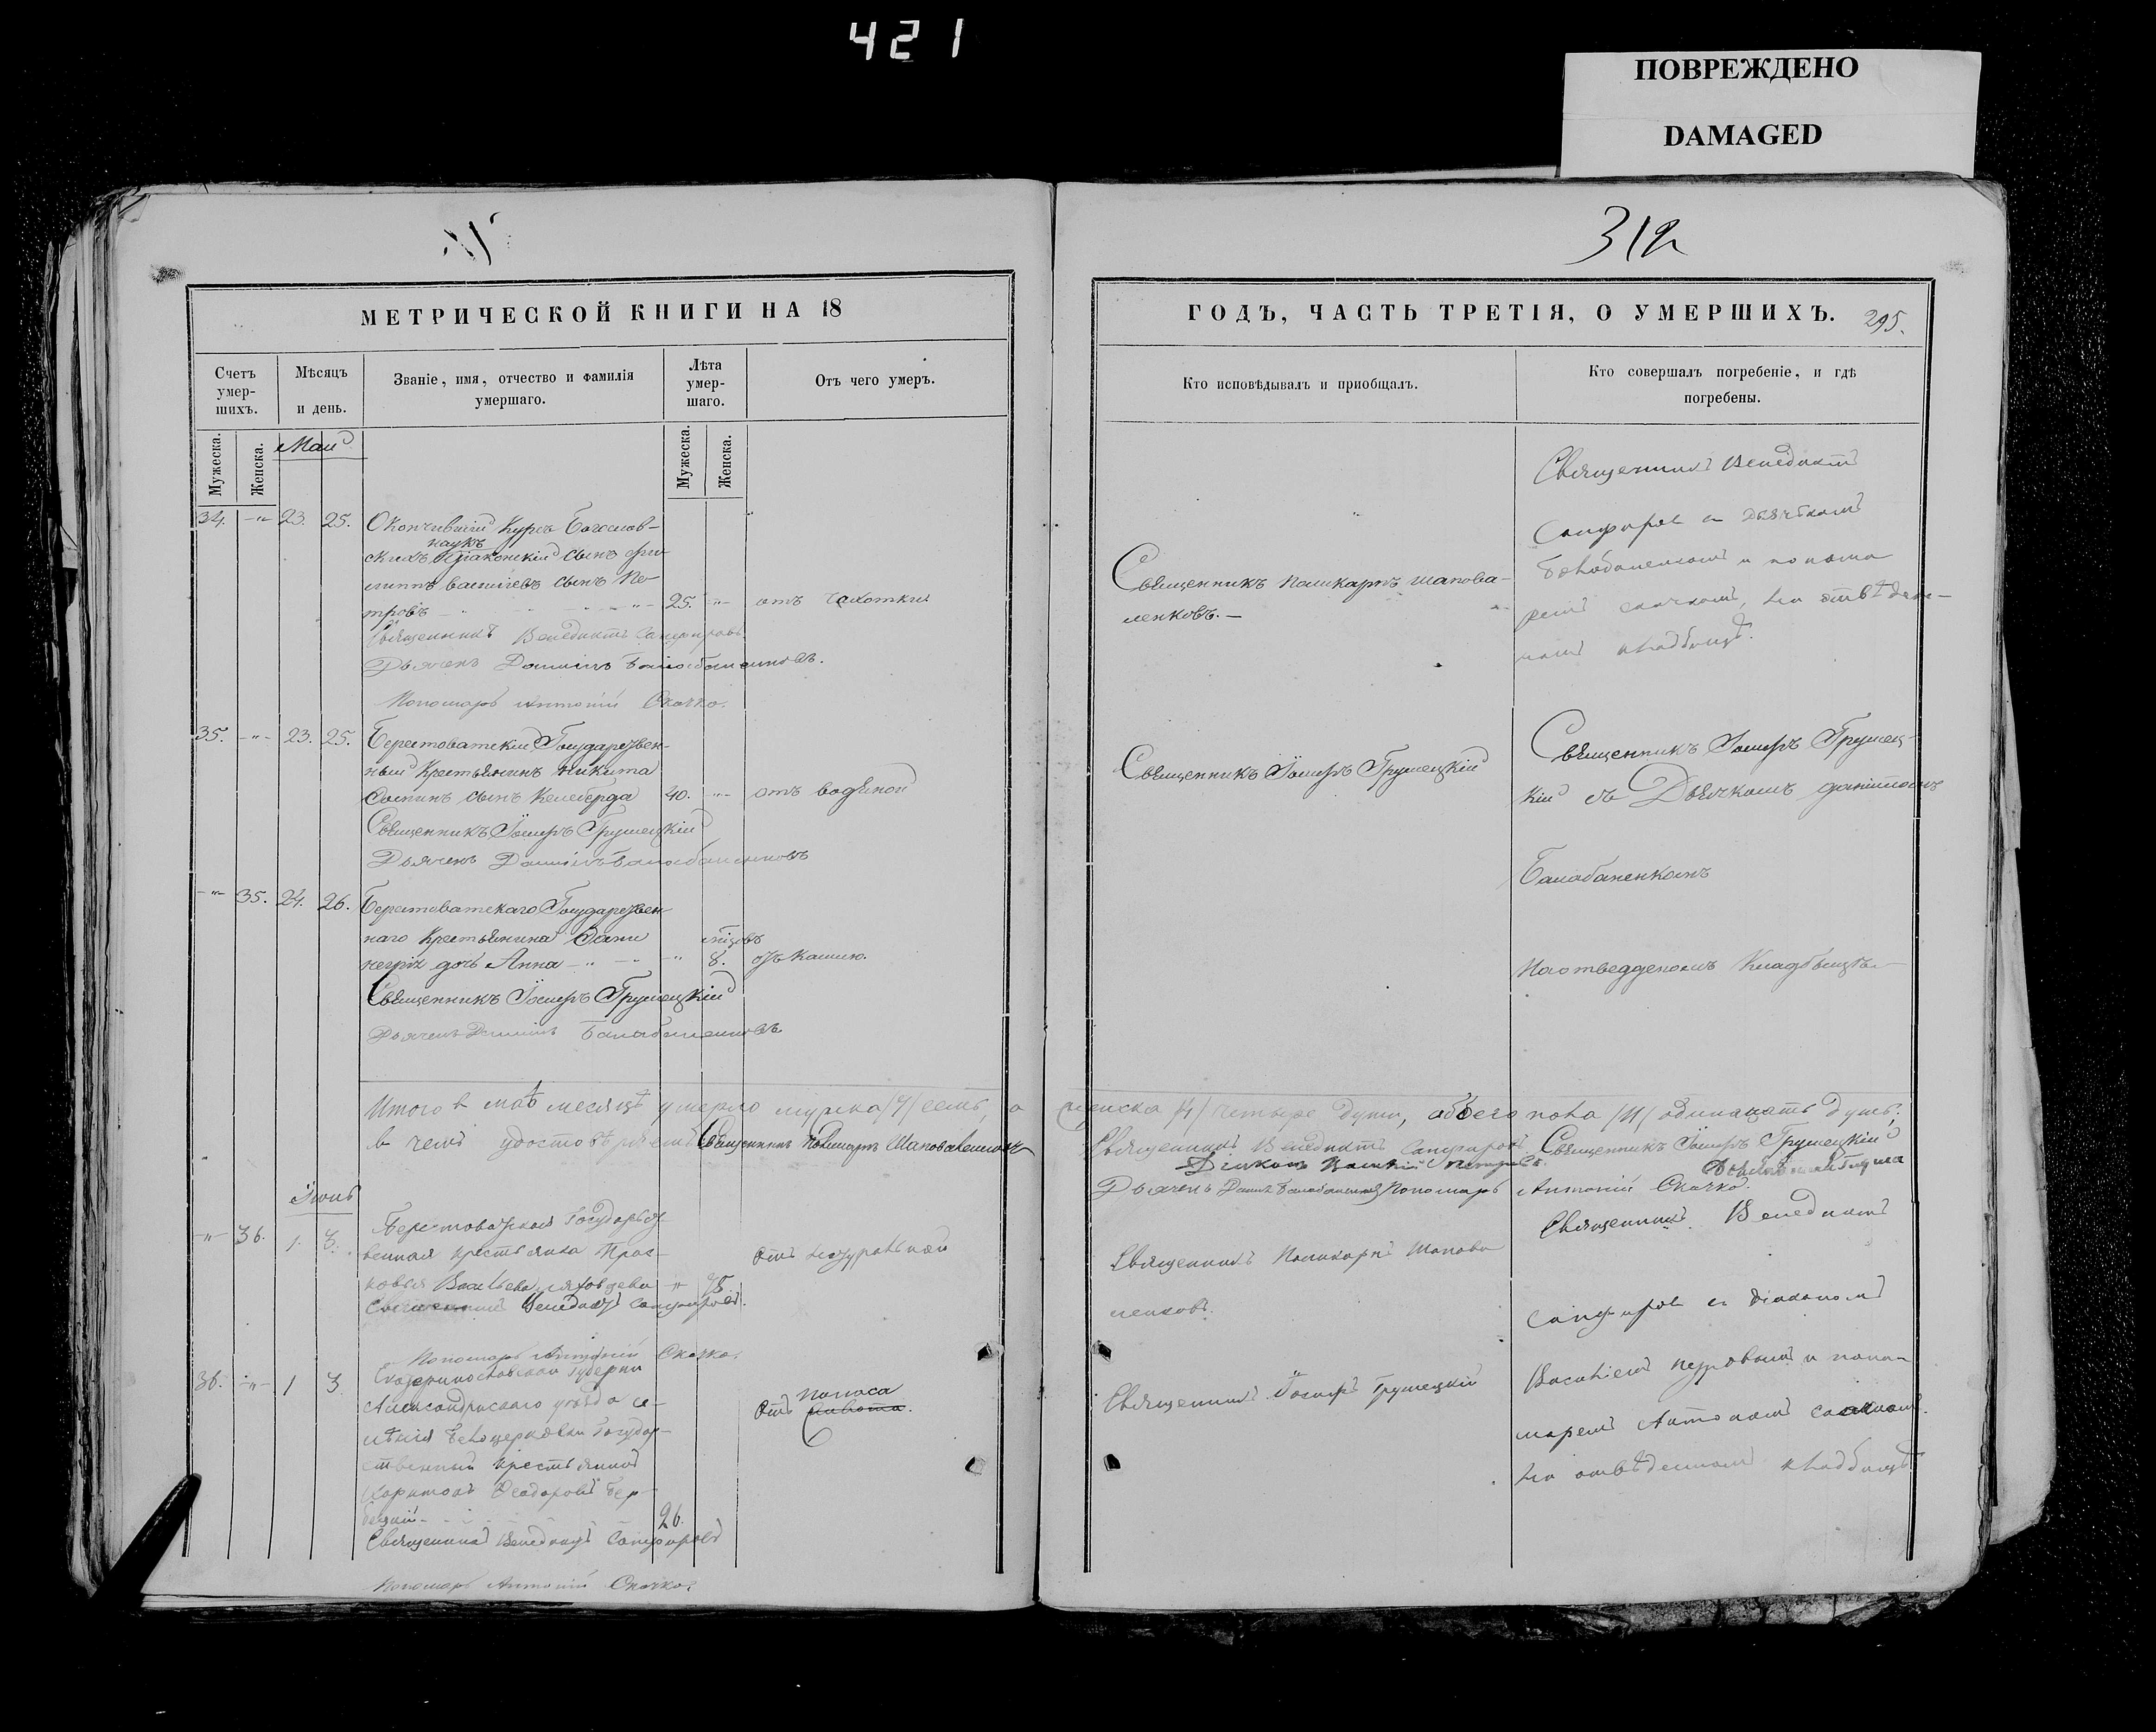 421
ПОВРЕЖДЕНО
DAMAGED
312
МЕТРИЧЕСКОЙ КНИГИ НА 18
ГОДЪ, ЧАСТЬ ТРЕТІЯ, О УМЕРШИХЪ.
295.
Счетъ умер-шихъ.
Мѣсяцъ и день.
Званіе, имя, отчество и фамилія умершаго.
Лѣта умер-шаго.
Отъ чего умеръ.
Кто исповѣдывалъ и приобщалъ.
Кто совершалъ погребеніе, и гдѣ погребены.
Мужеска.
Женска.
Май
Мужеска.
Женска.
34. -"- 23. 25. Окончившій Курсъ Богослов-
наукъ
скихъ Діаконскій сынъ
сынъ Пе-
тровъ 25. -"- отъ чахотки
Священникъ Венедиктъ Сапфировъ
Дьячекъ Даніилъ Балабаненковъ.
Пономарь Антоній Скачко.
Священникъ Поликарпъ Шапова-
ленковъ.—
Священникъ Венедиктъ
Сапфировъ съ Дьячкомъ
Балабаненкомъ и понома
ремъ Скачкомъ, на отвѣден-
номъ кладбищѣ.
35. -"- 23. 25. Берестоватскій Государствен-
ный Крестьянинъ Никита
сынъ Келеберда 40. -"- отъ водяной
Священникъ Іосифъ Грушецкій
Дьячекъ Даніилъ Балабаненковъ
Священникъ Іосифъ Грушецкій
Священникъ Іосифъ Грушец-
кій съ Дьячкомъ Даніиломъ
Балабаненкомъ
-"- 35. 24. 26. Берестоватскаго Государствен-
наго Крестьянина
дочь Анна -"- 8. отъ кашлю.
Священникъ Іосифъ Грушецкій
Дьячекъ Даніилъ Балабаненковъ
на отведденомъ Кладбищѣ.—
Итого в маѣ месяцѣ умерло мужеска /7/ семь, а женска /4/ четыре души, обоего пола /11/ одинацать душъ;
в чемъ удостовѣряемъ Священникъ Поликарпъ Шаповаленковъ Священникъ Венедиктъ Сапфировъ Священникъ Іосифъ Грушецкій
Діаконъ Василій Петровъ
Дьячекъ Даніилъ Балабаненковъ Пономарь Антоній Скачко.
Іюнь
-"- 36. 1. 3. Берестоватская Государст
венная крестьянка Прас-
ковья Васильева -"- 75. отъ натуральной
Священникъ Венедиктъ Сапфировъ.
Пономарь Антоній Скачко.
Священникъ Поликарпъ Шапова
ленковъ.
Священникъ Венедиктъ
Сапфировъ съ Діакономъ
Василіемъ Петровымъ и поно-
маремъ Антономъ Скачкомъ.
на отвѣденномъ кладбищѣ
36. -"- 1 3. Екатеринославской Губерни
Александрискаго уѣзда се-
лѣнія Бѣлоцерковки Государ-
ственный крестьянинъ
Харитонъ Феодоровъ Бер-
26.
отъ поноса
живота.
Священникъ Венедиктъ Сапфировъ
Пономарь Антоній Скачко.
Священникъ Іосифъ Грушецкій